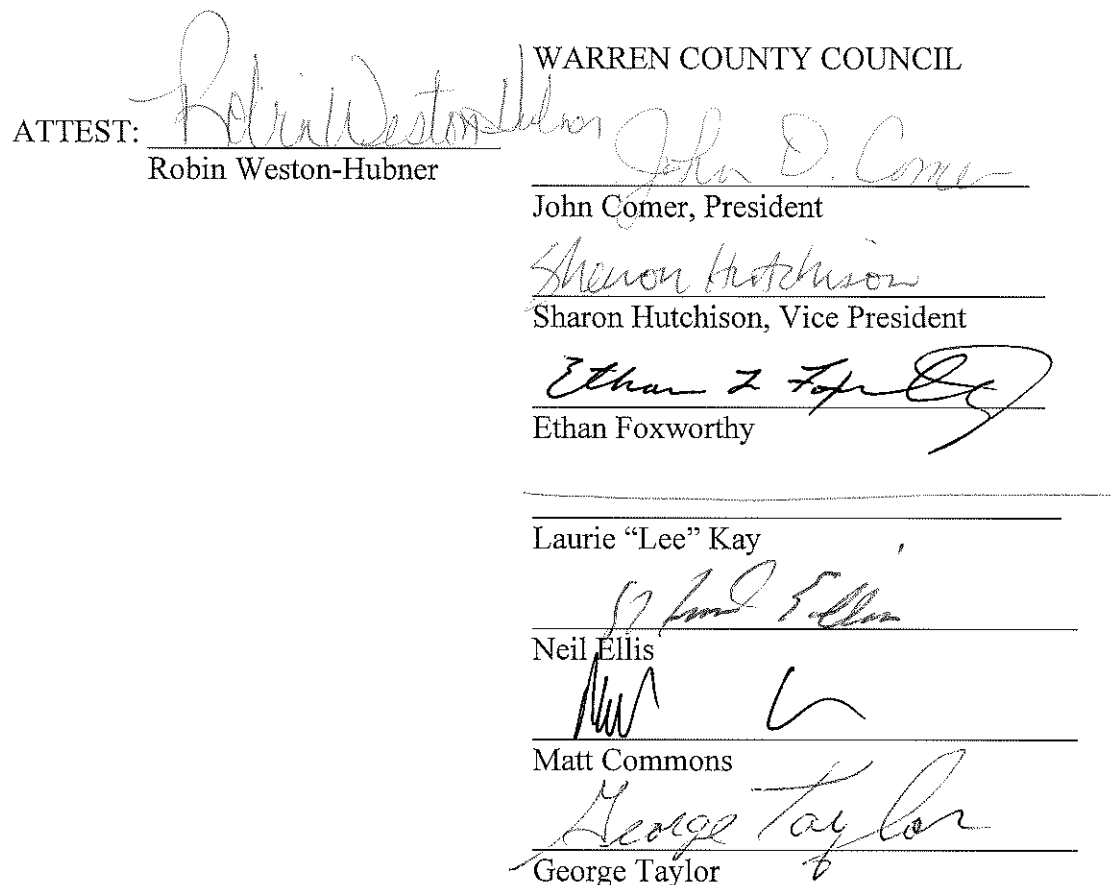 WARREN COUNTY COUNCIL
ATTEST: Robin Weston-Hubner
Robin Weston-Hubner
John D. Comer
John Comer, President
Sharon Hutchison
Sharon Hutchison, Vice President
Ethan L Foxworthy
Ethan Foxworthy
Laurie “Lee” Kay
Ellis
Neil Ellis
Matt Commons
George Taylor
George Taylor